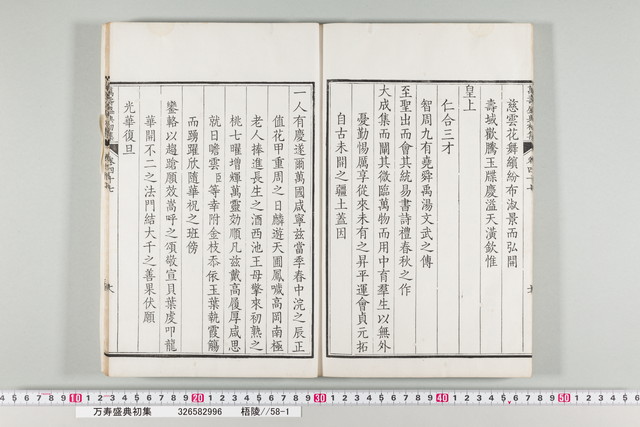 慈雲花舞繽紛布淑景而弘開
壽域歡騰玉牒慶溢天潢欽惟
皇上
仁合三才
智周九有堯舜禹湯文武之傳
至聖出而會其統易書詩禮春秋之作
大成集而闡其微臨萬物而用中育羣生以無外
憂勤惕厲享從來未有之昇平運會貞元拓
自古未開之疆土蓋因
一人有慶遂爾萬國咸寧茲當季春中浣之辰正
值花甲重周之日麟遊天囿鳳噦高岡南極
老人捧進長生之酒西池王母擎來初熟之
桃七曜增輝萬靈効順凡茲戴高履厚咸思
就日瞻雲臣等幸附金枝忝依玉葉執霞觴
而踴躍欣隨華祝之班傍
鑾輅以趨蹌願效嵩呼之頌敬宣貝葉虔叩龍
華開不二之法門結大千之善果伏願
光華復旦
10 20 30 40 50
万寿盛典初集 326582996 梧陵//58-1